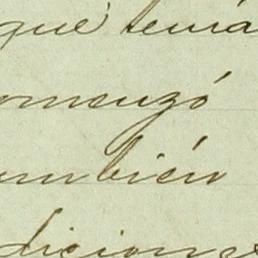 que tenia
omenzó
mbién
diciones